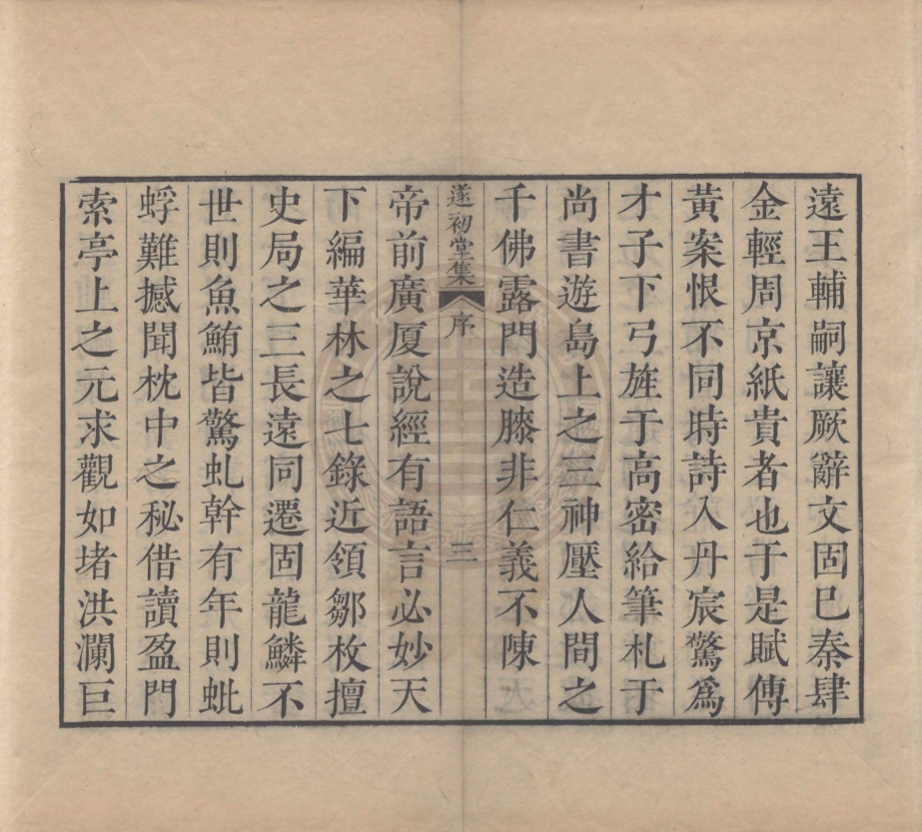 遠王輔嗣讓厥辭文固已秦肆
金輕周京紙貴者也于是賦傳
黃案恨不同時詩入丹宸驚爲
才子下弓旌于高密給筆札于
尚書遊島上之三神壓人間之
千佛露門造膝非仁義不陳
遂初堂集
序
三
帝前廣厦說經有語言必妙天
下編華林之七錄近領鄒枚擅
史局之三長遠同遷固龍鱗不
世則魚鮪皆驚虬幹有年則蚍
蜉難撼聞枕中之秘借讀盈門
索亭上之元求觀如堵洪瀾巨